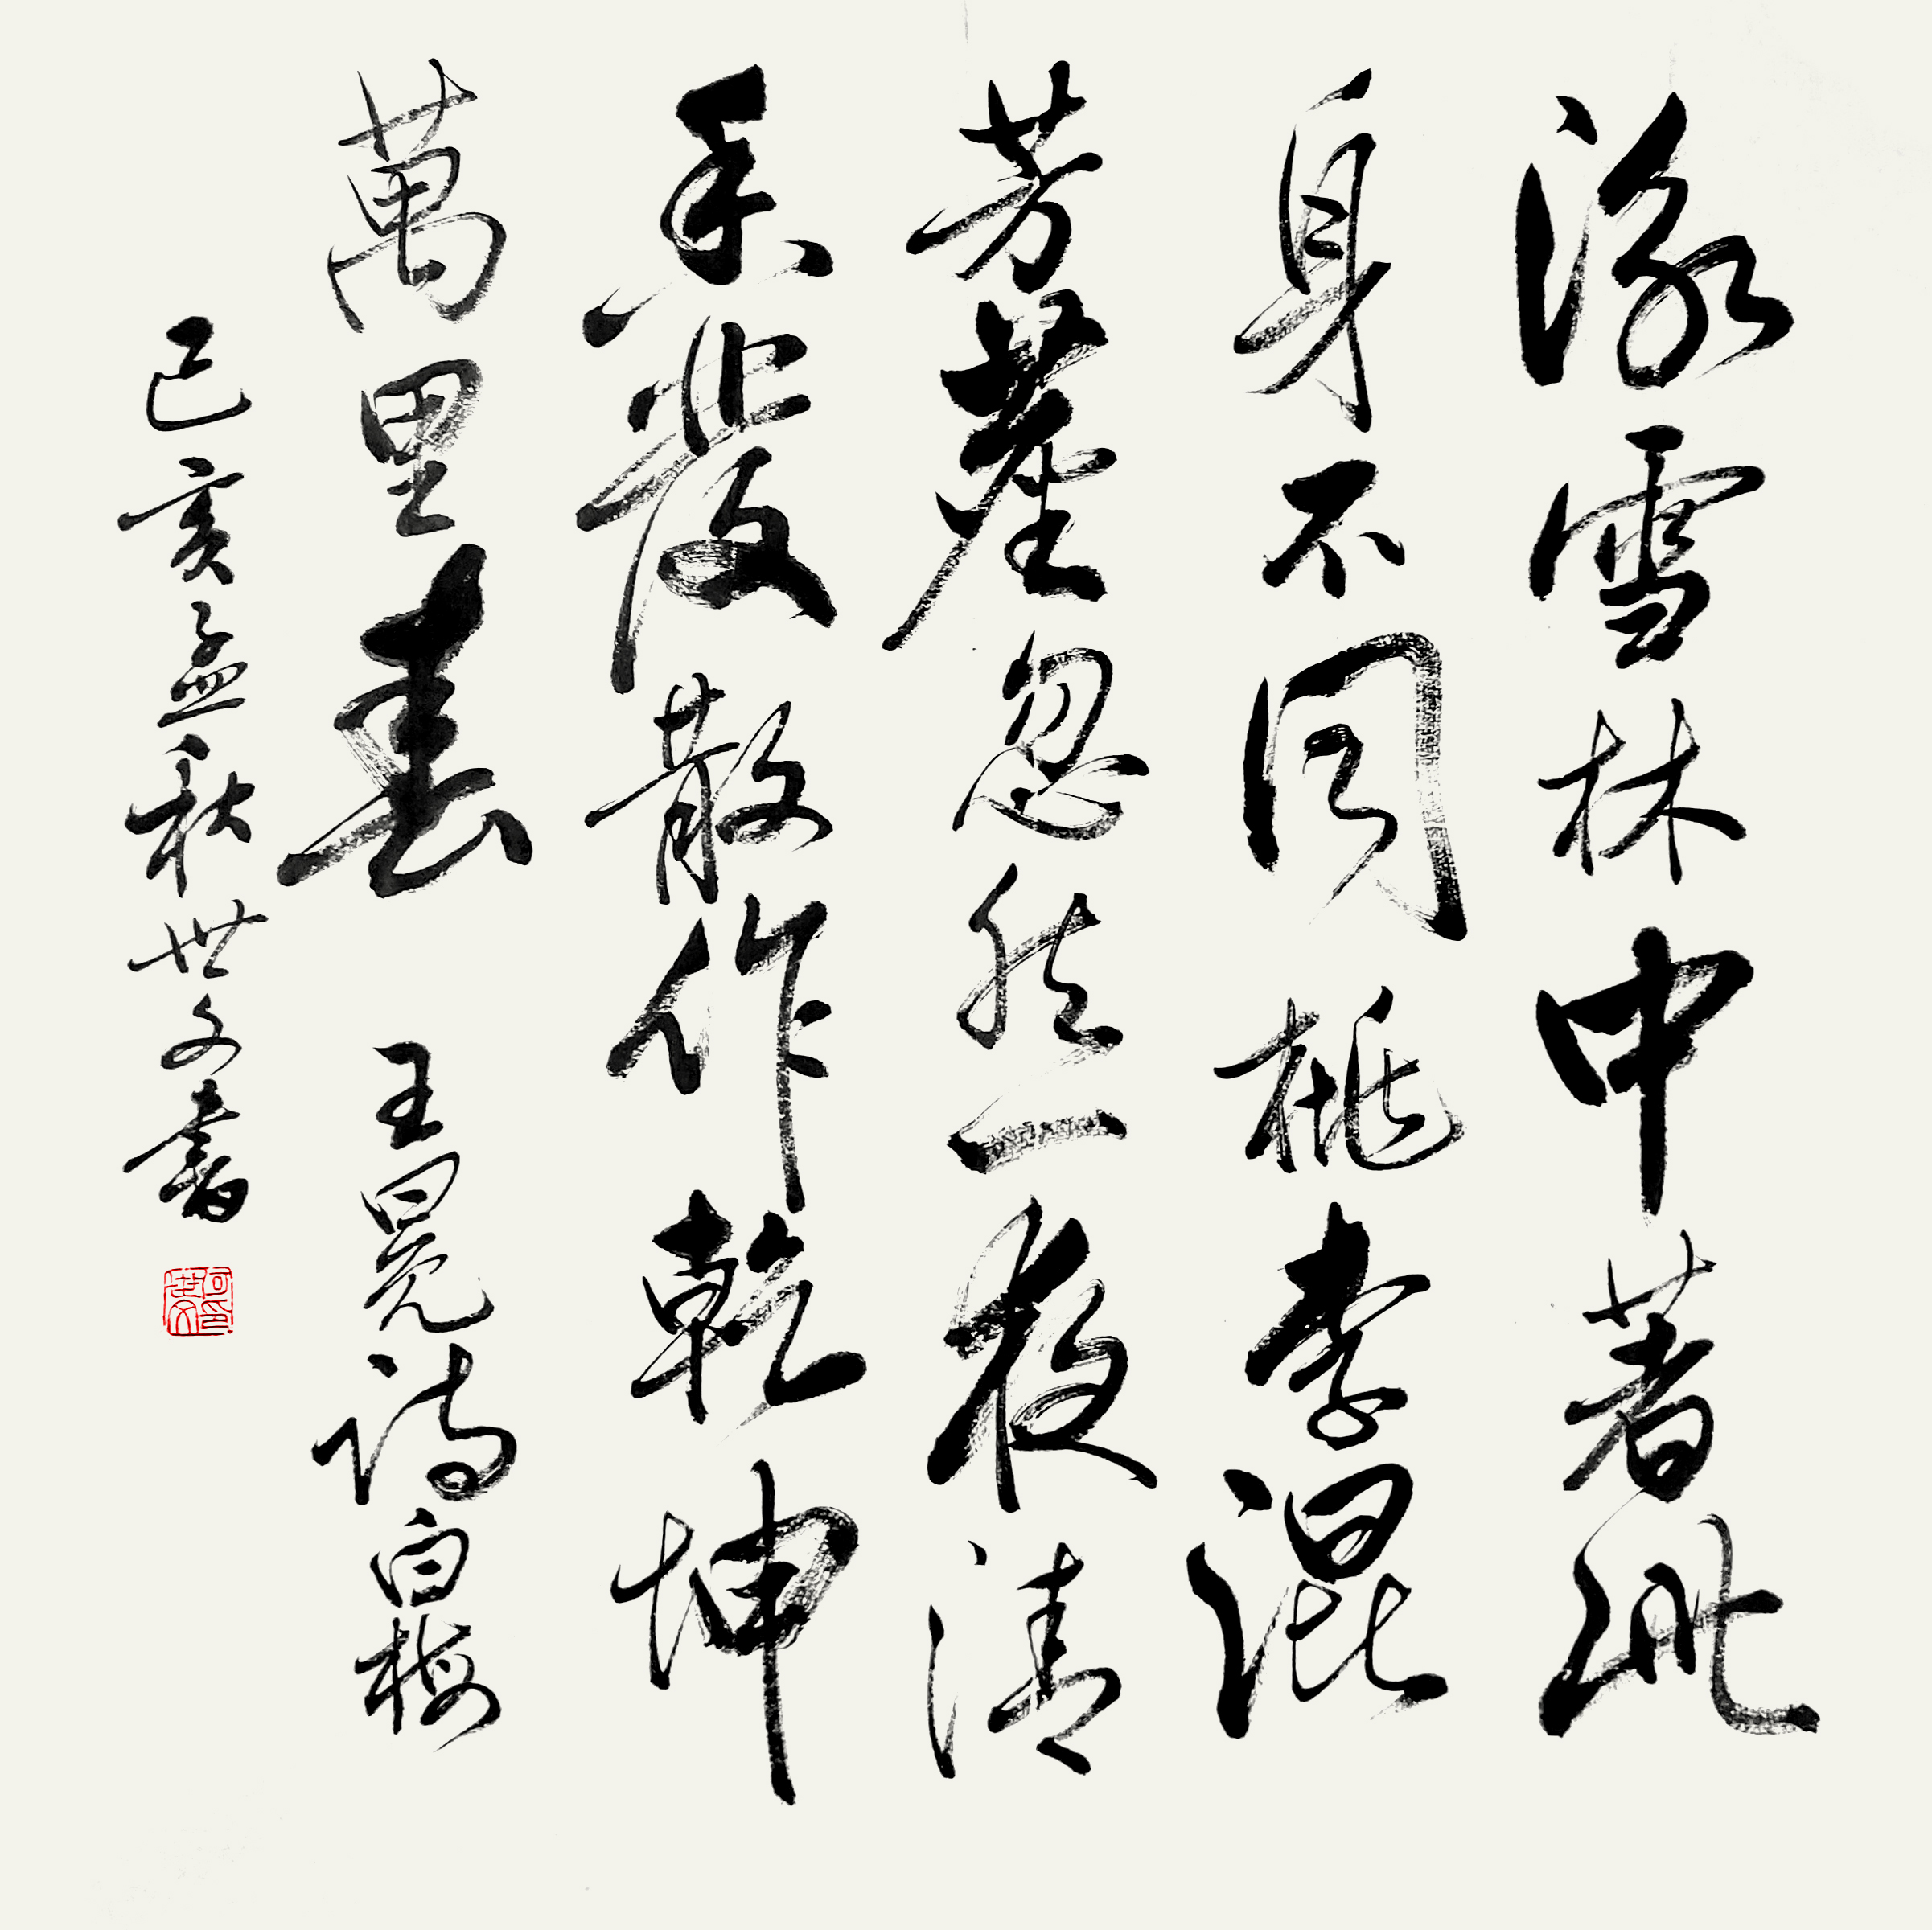 冰雪林中著此
身不同桃李混
芳塵忽然一夜清
香發散作乾坤
萬里春 王冕詩白梅
己亥孟秋世文書